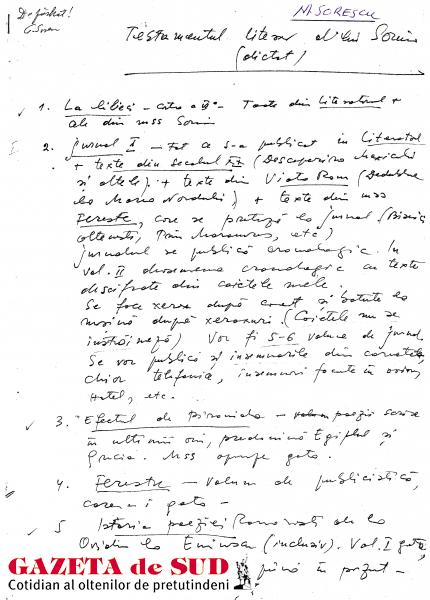 De păstrat!
G. Sorescu
M. SORESCU
Testamentul literar al lui Sorin
(dictat)
1. La Lilieci – Toate din Literatorul +
alte din mss Sorin
2. Jurnal I – Tot ce s-a publicat în Literatorul
+ texte din Secolul XX (Descoperirea Mexicului
și altele) + texte din Viața Rom
la Marea Nordului) + texte din mss
Ferestre, care se pretează la jurnal
oltenești, Prin Maramureș, etc)
Jurnalul se publică cronologic. În
vol. II cronologic cu texte
descifrate din caietele mele.
Se face xerox după caiet și bătute la
mașină după xeroxuri. (Caietele nu se
înstrăinează) Vor fi 5-6 volume de jurnal
Se vor publica și însemnările din carnetele,
chiar telefonice, însemnări făcute în avion,
Hotel, etc.
3. Efectul de Piramidă – poezii scrise
în ultimii ani, predomină Egiptul și
Grecia. Mss aproape gata.
4. Ferestre – Volum de publicistică,
care e gata –
5 Istoria poeziei Românești de la
Ovidiu la Eminescu (inclusiv). Vol. I gata,
până în prezent –
GAZETA de SUD
Cotidian al oltenilor de pretutindeni